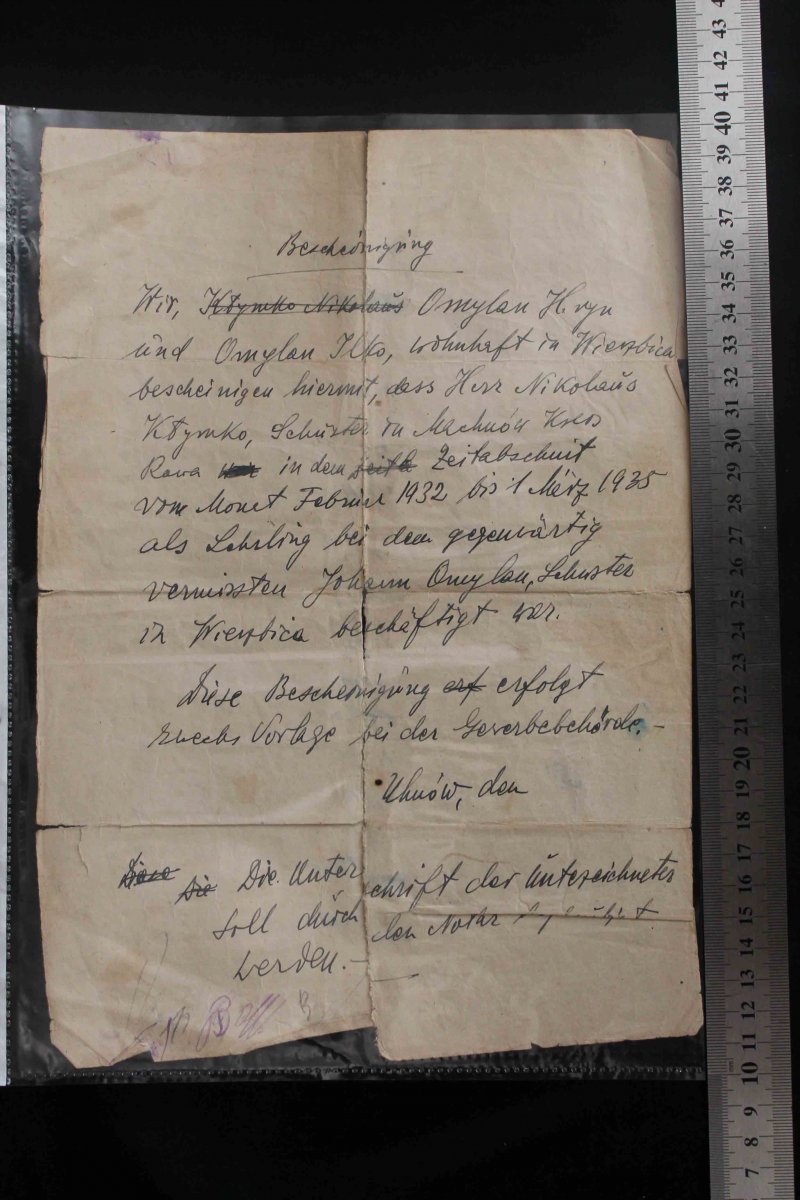 Bescheinigung
Wir, Kłymko Nikolaus Omylan Hryn
und Omylan Ilko, wohnhaft in Wierzbica
bescheinigen hiermit, dass Herr Nikolaus
Kłymko, Schuster in Machnów Kreis
Rawa in dem Zeitabschnit
vom Monet Februar 1932 bis 1 März 1935
als Lehrling bei dem gegenwärtig
vermissten Johann Omylan, Schuster
in Wierzbica beschäftigt war.
Diese Bescheinigung erf erfolgt
zwecks Vorlage bei der Gewerbebehörde.-
Uhnów, den
Diese Die Die Unterschrift der Unterzeichneter
soll durch den Notar
werden.-